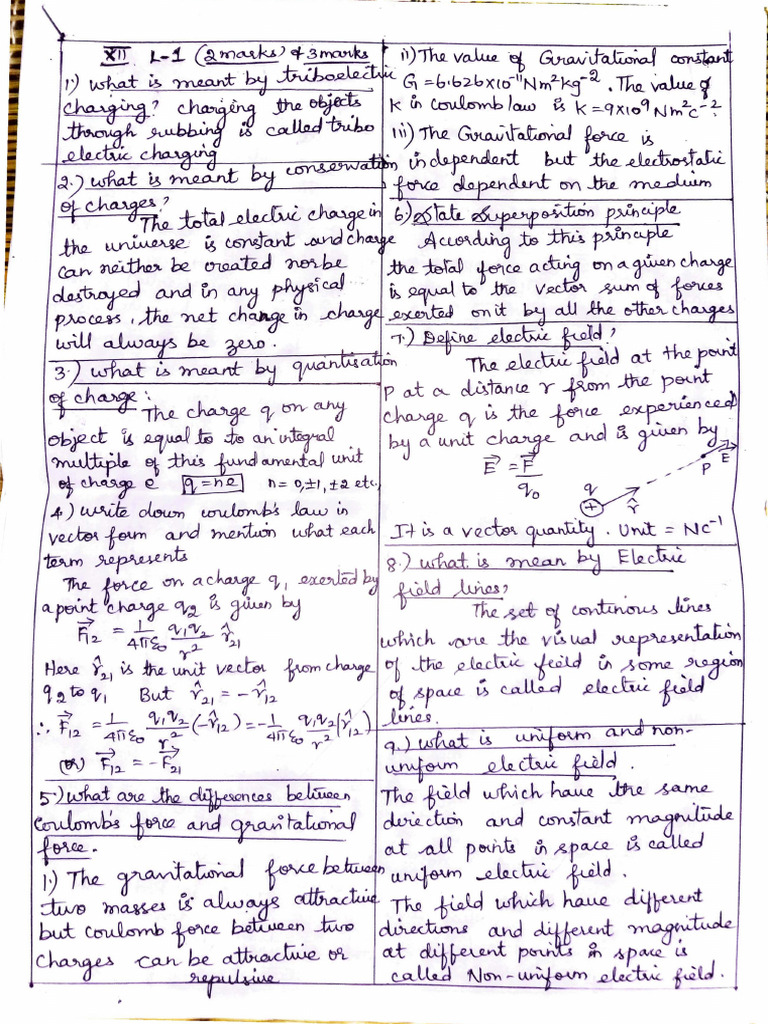 XII L-1 (2marks) & 3marks
1) what is meant by triboelectric
charging? charging the objects
through rubbing is called tribo
electric charging
2.) what is meant by conservation
of charges?
The total electric charge in
the universe is constant and charge
can neither be created nor be
destroyed and in any physical
process, the net change in charge
will always be zero.
3.) what is meant by quantisation
of charge:
The charge q on any
object is equal to to an integral
multiple of this fundamental unit
of charge e q=ne n=0,±1,±2 etc,
4) write down coulomb's law in
vector form and mention what each
term represents
The force on a charge q1 exerted by
a point charge q2 is given by
F⃗12 = 1/4πε0 q1q2/r² r̂21
Here r̂21 is the unit vector from charge
q2 to q1 But r̂21 = -r̂12
∴ F⃗12 = 1/4πε0 q1q2/r² (-r̂12) = -1/4πε0 q1q2/r² (r̂12)
(or) F⃗12 = -F⃗21
5) what are the differences between
Coulomb's force and gravitational
force.
1.) The gravitational force between
two masses is always attractive
but coulomb force between two
charges can be attractive or
repulsive
ii) The value of Gravitational constant
G = 6.626x10⁻¹¹Nm²kg⁻². The value of
K in coulomb law is K=9x10⁹ Nm²c⁻².
iii) The Gravitational force is
independent but the electrostatic
force dependent on the medium
6) State Superposition principle
Acording to this principle
the total force acting on a given charge
is equal to the vector sum of forces
exerted on it by all the other charges
7.) Define electric field?
The electric field at the point
P at a distance r from the point
charge q is the force experienced
by a unit charge and is given by
E⃗ = F⃗/q0
q + r̂ P E⃗
It is a vector quantity. Unit = Nc⁻¹
8.) what is mean by Electric
field lines?
The set of continous lines
which are the visual representation
of the electric feild in some region
of space is called electric field
lines.
9.) what is uniform and non-
uniform electric field.
The field which have the same
direction and constant magnitude
at all points in space is called
uniform electric field.
The field which have different
directions and different magnitude
at different points in space is
called Non-uniform electric field.